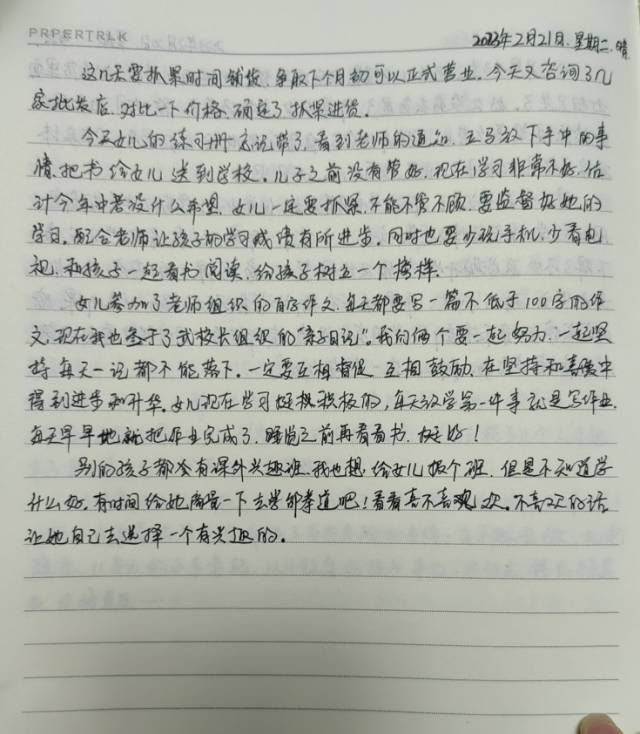 PRPERTRLK
2023年2月21日.星期二.晴
这几天要抓紧时间铺货,争取下个月初可以正式营业.今天又咨询了几
家批发店,对比一下价格,硕定了抓紧进货.
今天女儿的练习册忘记带了,看到老师的通知,立马放下手中的事
情,把书给女儿送到学校,儿子之前没有管好,现在学习非常不好,估
计今年中考没什么希望,女儿一定要抓紧,不能不管不顾,要监督好她的
学习,配合老师让孩子的学习成绩有所进步,同时也要少玩手机,少看电
视,和孩子一起看书阅读,给孩子树立一个榜样.
女儿参加了老师组织的百字作文,每天都要写一篇不低于100字的作
文,现在我也参于了武校长组织的"亲子日记",我们俩个要一起努力,一起坚
持每天一记都不能落下.一定要互相督促,互相鼓励,在坚持和素暖中
得到进步和升华.女儿现在学习挺积极的,每天放学第一件事就是写作业.
每天早早地就把作业完成了,睡觉之前再看看书,挺好!
别的孩子都会有课外兴趣班,我也想给女儿报个班,但是不知道学
什么好,有时间给她商量一下去学跆拳道吧!看看喜不喜欢,不喜欢的话
让她自己去选择一个有兴趣的.